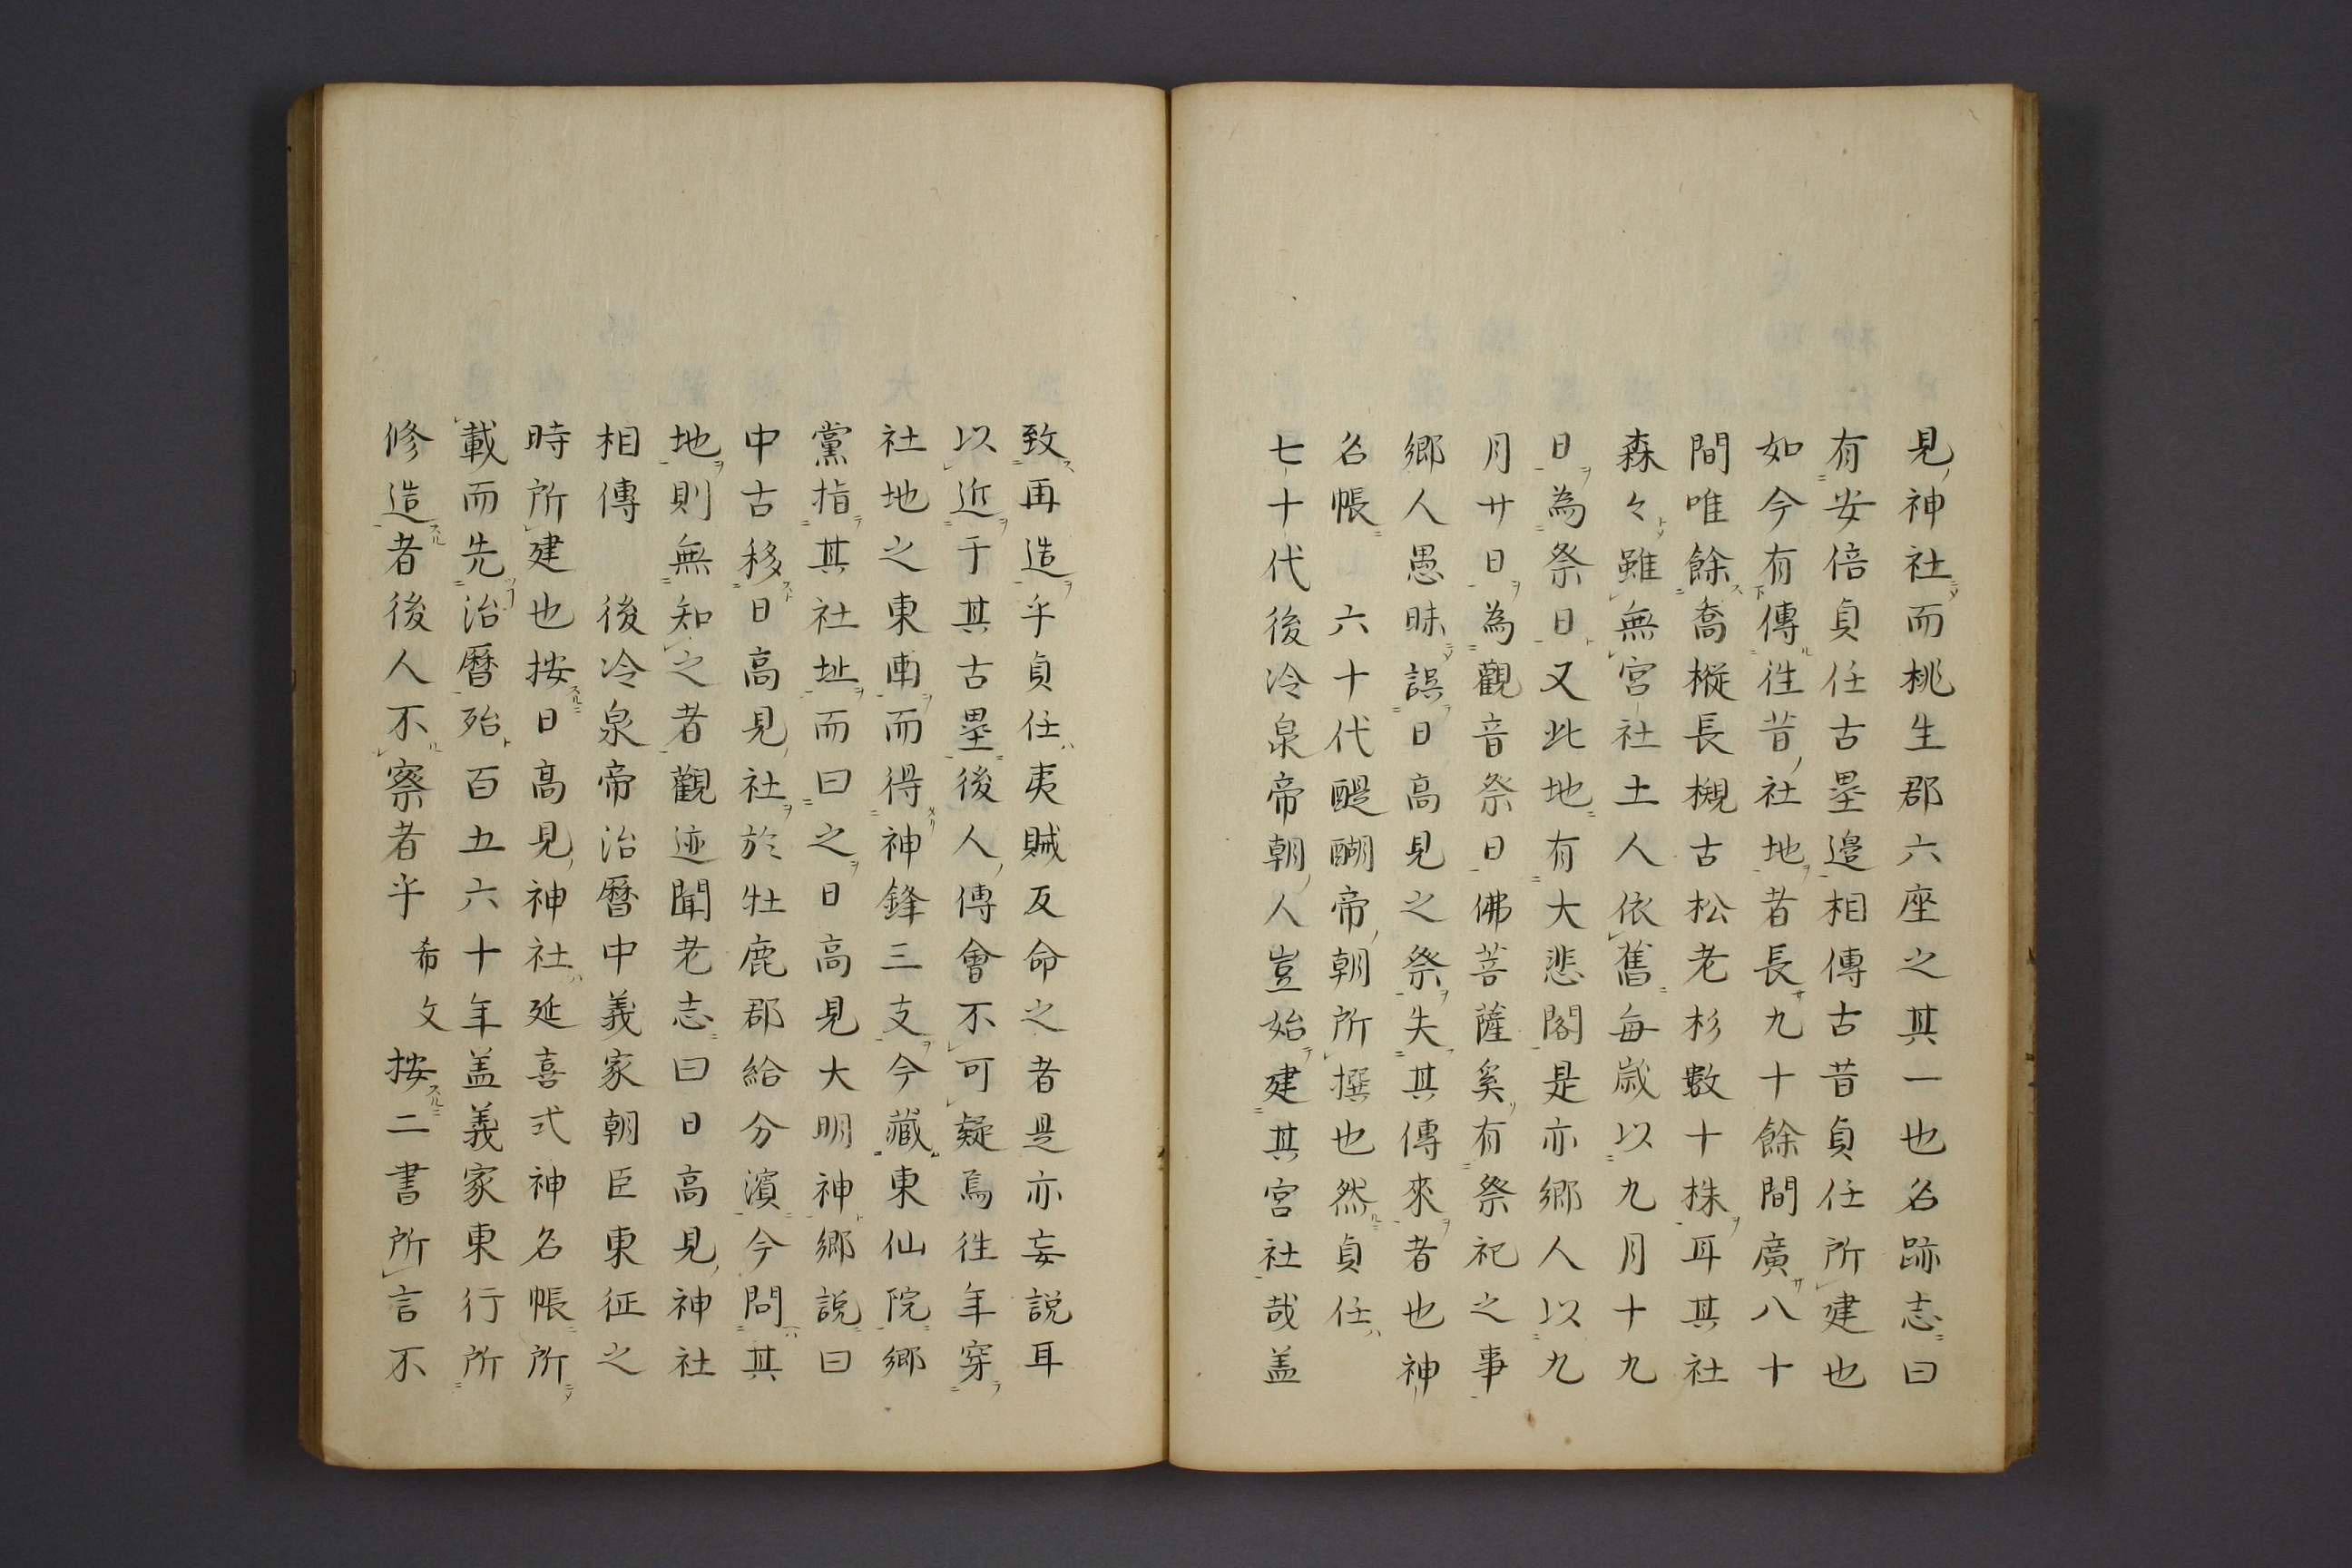 見神社而桃生郡六座之其一也名跡志曰
有安倍貞任古壘邉相傳古昔貞任所建也
如今有傳徃昔社地者長九十餘間廣八十
間唯餘喬樅長槻古松老杉數十株耳其社
森々雖無宮社土人依舊毎歳以九月十九
日為祭日又此地有大悲閣是亦郷人以九
月廿日為觀音祭日佛菩薩奚有祭祀之事
郷人愚昧誤日高見之祭失其傳來者也神
名帳　六十代醍醐帝朝所撰也然貞任
七十代後冷泉帝朝人豈始建其宮社哉盖
致再造乎貞任夷賊反命之者是亦妄説耳
以近于其古壘後人傳會不可疑焉徃年穿
社地之東南而得神鋒三支今藏東仙院郷
黨指其社址而曰之日高見大明神郷説曰
中古移日高見社於牡鹿郡給分濱今問其
地則無知之者觀迹聞老志曰日高見神社
相傳　後冷泉帝治暦中義家朝臣東征之
時所建也按日高見神社延喜式神名帳所
載而先治暦殆百五六十年盖義家東行所
修造者後人不察者乎　希文按二書所言不